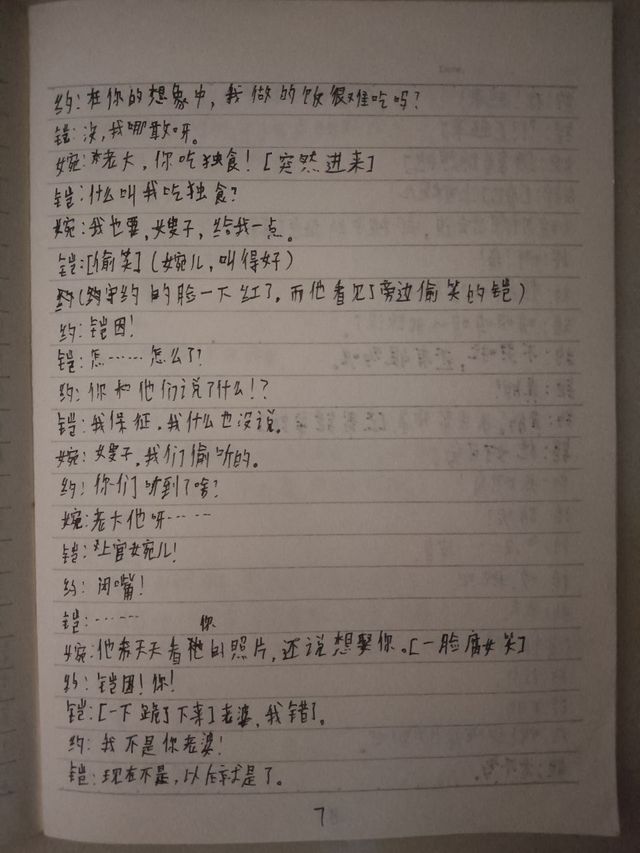 约：在你的想象中，我做的饭很难吃吗？
铠：没，我哪敢呀。
婉：老大，你吃独食！[突然进来]
铠：什么叫我吃独食？
婉：我也要，嫂子，给我一点。
铠：[偷笑]（婉儿，叫得好）
（守约的脸一下红了，而他看见了旁边偷笑的铠）
约：铠因！
铠：怎……怎么了？
约：你和他们说了什么！？
铠：我保征，我什么也没说。
婉：嫂子，我们偷听的。
约：你们听到了啥？
婉：老大他呀……
铠：上官婉儿！
约：闭嘴！
铠：……
婉：他天天看你的照片，还说想娶你。[一脸腐女笑]
约：铠因！你！
铠：[一下跪了下来]老婆，我错了。
约：我不是你老婆！
铠：现在不是，以后就是了。
7